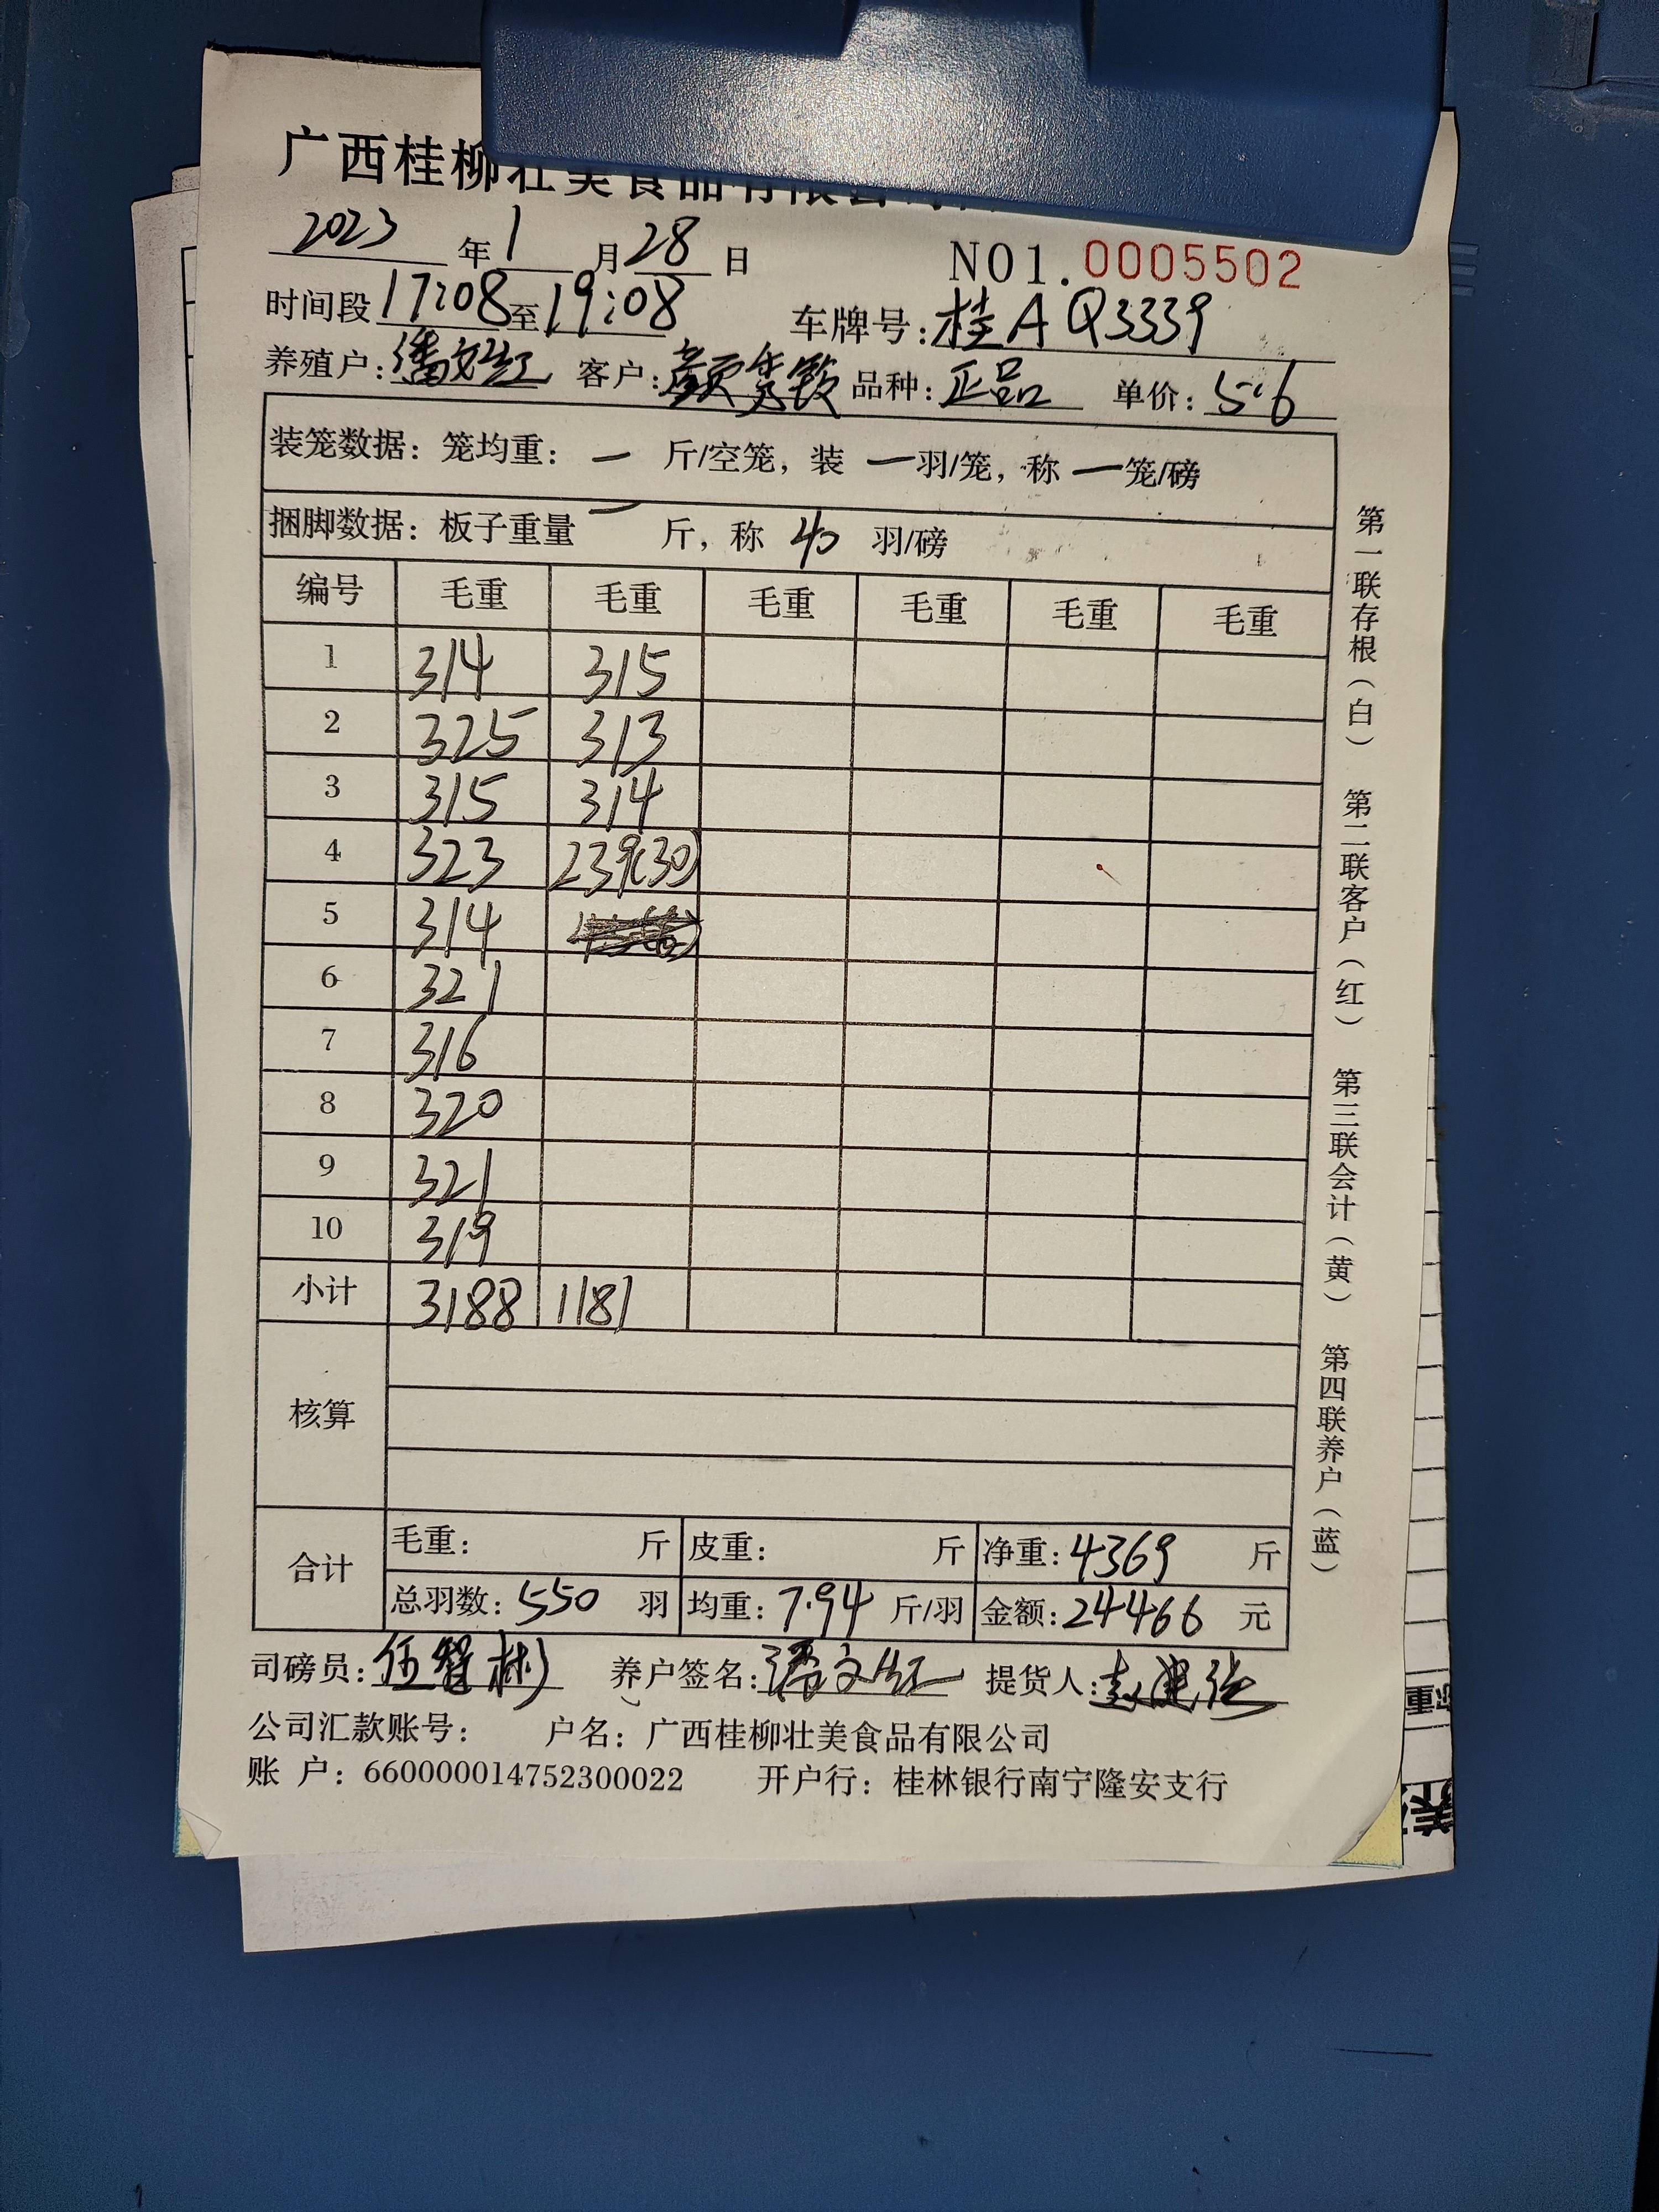 广西桂柳壮美食品有限公司
2023 年 1 月 28 日 NO1. 0005502
时间段 17:08 至 19:08 车牌号: 桂A Q3339
养殖户: 潘文红 客户: 颜秀 品种: 正品 单价: 5.6
装笼数据: 笼均重: 一 斤/空笼, 装 一 羽/笼, 称 一 笼/磅
捆脚数据: 板子重量 一 斤, 称 40 羽/磅
编号 毛重 毛重 毛重 毛重 毛重 毛重
1 314 315
2 325 313
3 315 314
4 323 239(30)
5 314
6 321
7 316
8 320
9 321
10 319
小计 3188 1181
核算
合计 毛重: 斤 皮重: 斤 净重: 4369 斤
总羽数: 550 羽 均重: 7.94 斤/羽 金额: 24466 元
司磅员: 伍智彬 养户签名: 潘文红 提货人:
公司汇款账号: 户名: 广西桂柳壮美食品有限公司
账 户: 660000014752300022 开户行: 桂林银行南宁隆安支行
第一联存根(白) 第二联客户(红) 第三联会计(黄) 第四联养户(蓝)